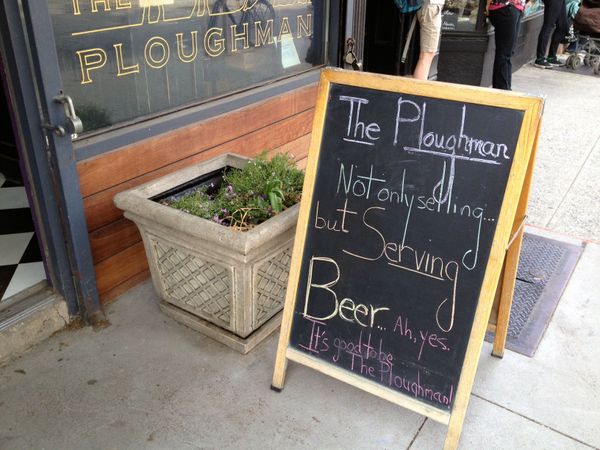 THE
PLOUGHMAN
The Ploughman
Not only selling...
but Serving
Beer... Ah, yes.
It's good to be
The Ploughman!